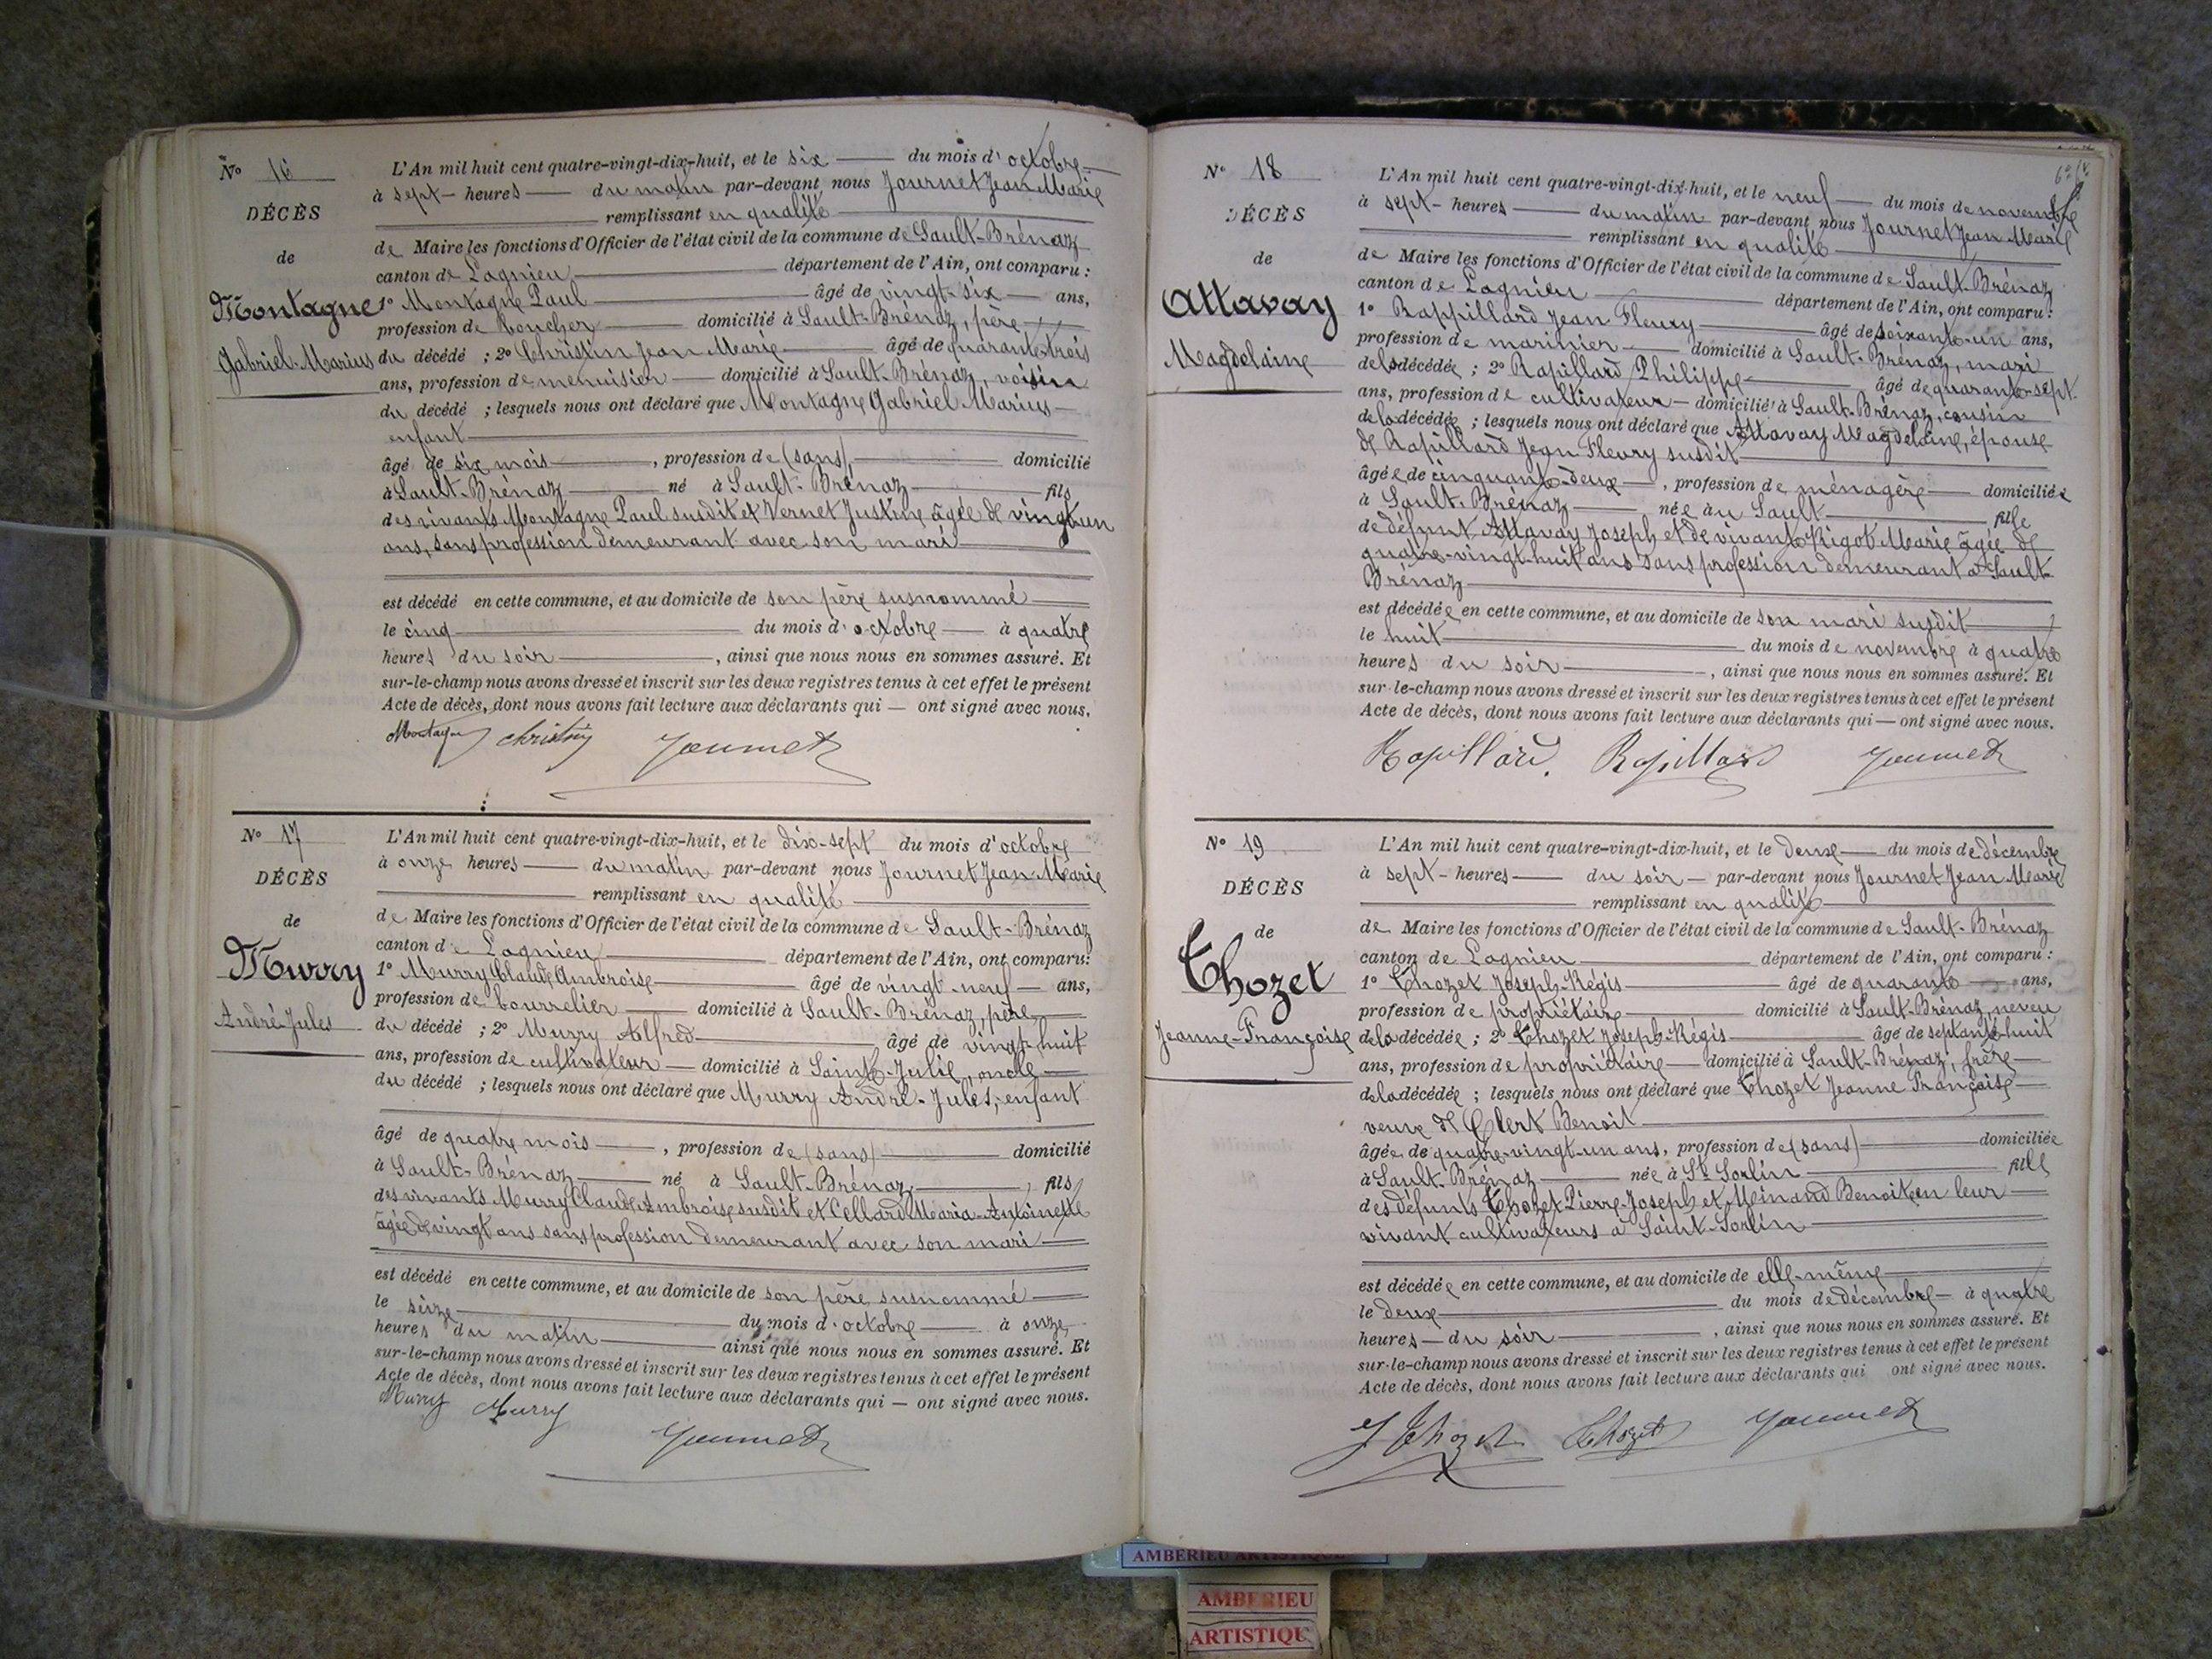 N° 16
DÉCÈS
de
Montagne
Gabriel-Marius
L'An mil huit cent quatre-vingt-dix-huit, et le six du mois d'octobre
à sept heures du matin par-devant nous Journet Jean Marie
remplissant en qualité
de Maire les fonctions d'Officier de l'état civil de la commune de Sault-Brénaz
canton de Lagnieu département de l'Ain, ont comparu :
1° Montagne Paul âgé de vingt-six ans,
profession de boucher domicilié à Sault-Brénaz, père
du décédé ; 2° Christin Jean Marie âgé de quarante-trois
ans, profession de menuisier domicilié à Sault-Brénaz, voisin
du décédé ; lesquels nous ont déclaré que Montagne Gabriel Marius
enfant
âgé de six mois, profession de (sans) domicilié
à Sault-Brénaz né à Sault-Brénaz fils
des vivants Montagne Paul susdit et Vernet Justine âgée de vingt un
ans, sans profession demeurant avec son mari
est décédé en cette commune, et au domicile de son père susnommé
le cinq du mois d'octobre à quatre
heures du soir, ainsi que nous nous en sommes assuré. Et
sur-le-champ nous avons dressé et inscrit sur les deux registres tenus à cet effet le présent
Acte de décès, dont nous avons fait lecture aux déclarants qui — ont signé avec nous.
Montagne Christin Journet
N° 17
DÉCÈS
de
Murry
André-Jules
L'An mil huit cent quatre-vingt-dix-huit, et le dix-sept du mois d'octobre
à onze heures du matin par-devant nous Journet Jean Marie
remplissant en qualité
de Maire les fonctions d'Officier de l'état civil de la commune de Sault-Brénaz
canton de Lagnieu département de l'Ain, ont comparu :
1° Murry Claude Ambroise âgé de vingt-neuf ans,
profession de bourrelier domicilié à Sault-Brénaz, père
du décédé ; 2° Murry Alfred âgé de vingt-huit
ans, profession de cultivateur domicilié à Sainte-Julie, oncle
du décédé ; lesquels nous ont déclaré que Murry André-Jules, enfant
âgé de quatre mois, profession de (sans) domicilié
à Sault-Brénaz né à Sault-Brénaz, fils
des vivants Murry Claude Ambroise susdit et Cellard Maria-Antoinette
âgée de vingt ans sans profession demeurant avec son mari
est décédé en cette commune, et au domicile de son père susnommé
le seize du mois d'octobre à onze
heures du matin ainsi que nous nous en sommes assuré. Et
sur-le-champ nous avons dressé et inscrit sur les deux registres tenus à cet effet le présent
Acte de décès, dont nous avons fait lecture aux déclarants qui — ont signé avec nous.
Murry Murry Journet
N° 18
DÉCÈS
de
Attavay
Magdelaine
L'An mil huit cent quatre-vingt-dix-huit, et le neuf du mois de novembre
à sept heures du matin par-devant nous Journet Jean Marie
remplissant en qualité
de Maire les fonctions d'Officier de l'état civil de la commune de Sault-Brénaz
canton de Lagnieu département de l'Ain, ont comparu :
1° Rappillard Jean Fleury âgé de soixante-un ans,
profession de marinier domicilié à Sault-Brénaz, mari
de la décédée ; 2° Rapillard Philippe âgé de quarante-sept
ans, profession de cultivateur domicilié à Sault-Brénaz, cousin
de la décédée ; lesquels nous ont déclaré que Attavay Magdelaine, épouse
de Rapillard Jean Fleury susdit
âgée de cinquante-deux, profession de ménagère domiciliée
à Sault-Brénaz née au Sault fille
de défunt Attavay Joseph et de vivante Rigot Marie âgée de
quatre-vingt-huit ans sans profession demeurant à Sault-
Brénaz
est décédée en cette commune, et au domicile de son mari susdit
le huit du mois de novembre à quatre
heures du soir, ainsi que nous nous en sommes assuré. Et
sur-le-champ nous avons dressé et inscrit sur les deux registres tenus à cet effet le présent
Acte de décès, dont nous avons fait lecture aux déclarants qui — ont signé avec nous.
Rapillard. Rapillard Journet
N° 19
DÉCÈS
de
Chozet
Jeanne-Françoise
L'An mil huit cent quatre-vingt-dix-huit, et le deux du mois de décembre
à sept heures du soir par-devant nous Journet Jean Marie
remplissant en qualité
de Maire les fonctions d'Officier de l'état civil de la commune de Sault-Brénaz
canton de Lagnieu département de l'Ain, ont comparu :
1° Chozet Joseph-Régis âgé de quarante ans,
profession de propriétaire domicilié à Sault-Brénaz, neveu
de la décédée ; 2° Chozet Joseph-Régis âgé de septante-huit
ans, profession de propriétaire domicilié à Sault-Brénaz, frère
de la décédée ; lesquels nous ont déclaré que Chozet Jeanne Françoise
veuve de Clert Benoit
âgée de quatre-vingt-un ans, profession de (sans) domiciliée
à Sault-Brénaz née à St Sorlin fille
des défunts Chozet Pierre-Joseph et Meinand Benoite en leur
vivant cultivateurs à Saint-Sorlin
est décédée en cette commune, et au domicile de elle-même
le deux du mois de décembre à quatre
heures du soir, ainsi que nous nous en sommes assuré. Et
sur-le-champ nous avons dressé et inscrit sur les deux registres tenus à cet effet le présent
Acte de décès, dont nous avons fait lecture aux déclarants qui ont signé avec nous.
J Chozet Chozet Journet
AMBERIEU ARTISTIQUE
AMBERIEU
ARTISTIQU